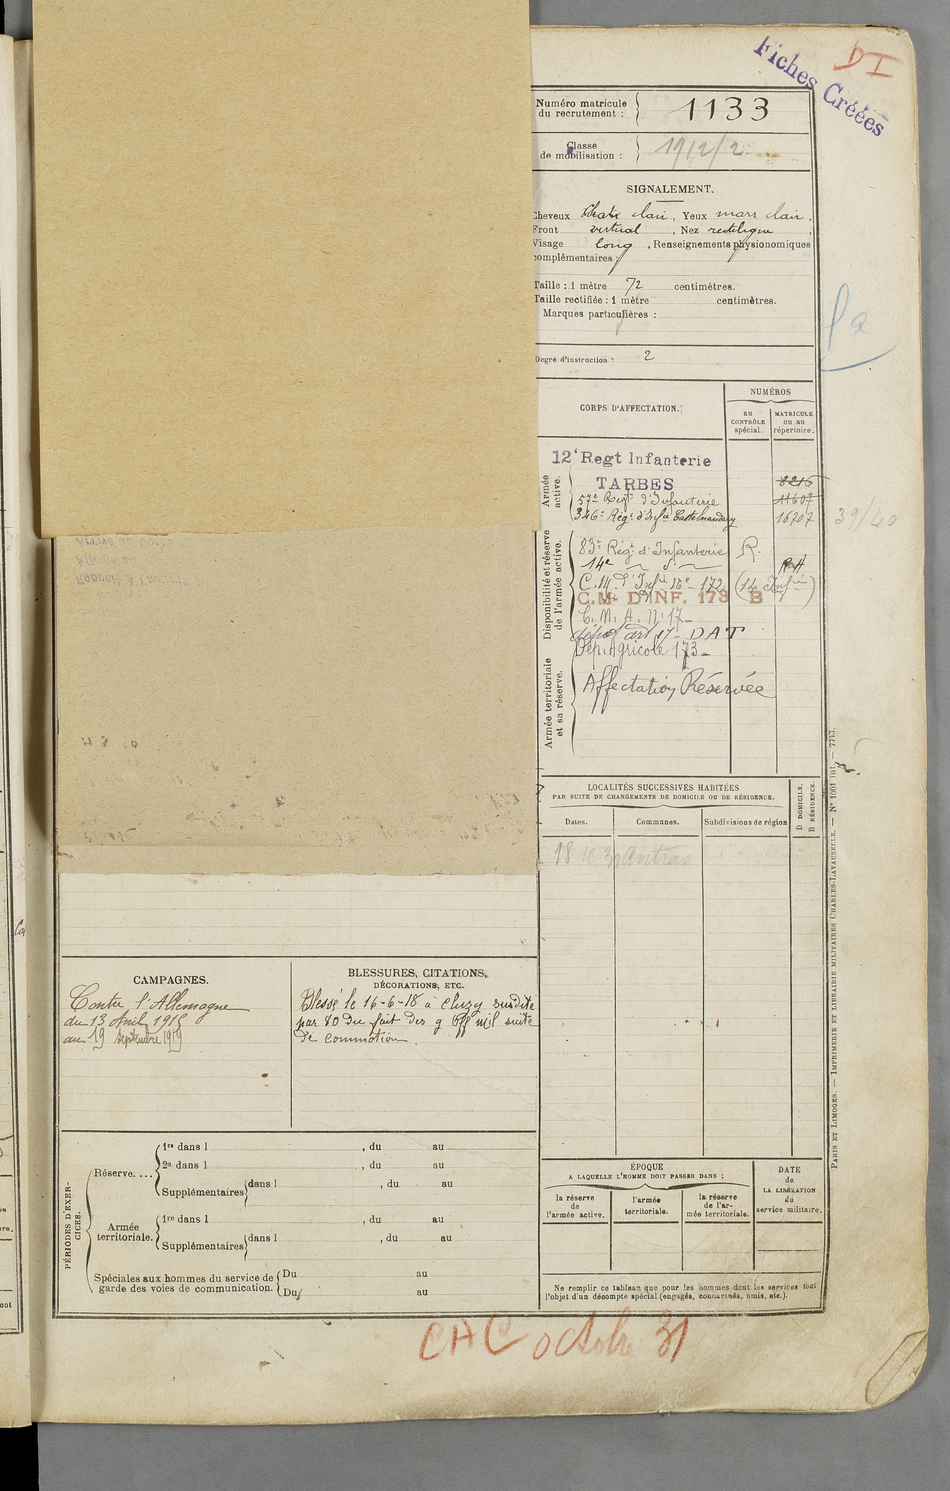 Fiches Créées
DI
Numéro matricule
du recrutement :
1133
Classe
de mobilisation :
1912/2
SIGNALEMENT.
Cheveux chatn clair, Yeux marr clair,
Front vertical, Nez rectiligne,
Visage long, Renseignements physionomiques
complémentaires :
Taille : 1 mètre 72 centimètres.
Taille rectifiée : 1 mètre centimètres.
Marques particulières :
Degré d'instruction : 2
CORPS D'AFFECTATION.
NUMÉROS
au
CONTRÔLE
spécial.
MATRICULE
ou au
répertoire.
Armée
active.
12e Regt Infanterie
TARBES
8216
57e Regt d'Infanterie 11607
346e Rég. d'Infie Castelnaudary 16707
39/40
Disponibilité et réserve
de l'armée active.
83e Rég. d'Infanterie R.
14e d°
C.M. d'Infie 16e - 172 (14 Infie)
C.M. D'INF. 173 B
C. M. A. N. 17
dépot art 17 - DAT
Dép. Agricole 173
Armée territoriale
et sa réserve.
Affectation Réservée
LOCALITÉS SUCCESSIVES HABITÉES
PAR SUITE DE CHANGEMENTS DE DOMICILE OU DE RÉSIDENCE.
D DOMICILE.
R RÉSIDENCE.
Dates.
Communes.
Subdivisions de région
18 Antras
CAMPAGNES.
Contre l'Allemagne
du 13 Avril 1915
au 19 septembre 1919
BLESSURES, CITATIONS,
DÉCORATIONS, ETC.
Blessé le 16-6-18 à Cluzy susdite
par 80 Du fait des g Off mil suite
de commotion.
PÉRIODES D'EXER-
CICES.
Réserve. ...
1re dans l , du au
2e dans l , du au
Supplémentaires dans l , du au
Armée
territoriale.
1re dans l , du au
Supplémentaires dans l , du au
Spéciales aux hommes du service de
garde des voies de communication.
Du au
Du au
ÉPOQUE
A LAQUELLE L'HOMME DOIT PASSER DANS :
la réserve
de
l'armée active.
l'armée
territoriale.
la réserve
de l'ar-
mée territoriale.
DATE
de
LA LIBÉRATION
du
service militaire.
Ne remplir ce tableau que pour les hommes dont les services font
l'objet d'un décompte spécial (engagés, condamnés, omis, etc.).
PARIS ET LIMOGES. — IMPRIMERIE ET LIBRAIRIE MILITAIRES CHARLES-LAVAUZELLE. — N° 1001 int. — 7743.
CAC octobre 31